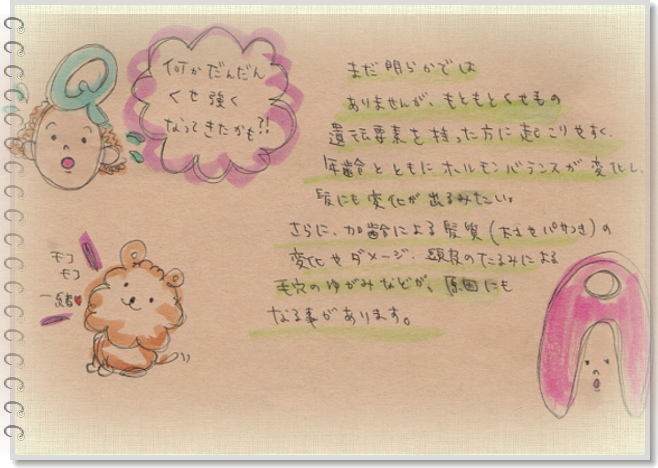 Q
何かだんだん
くせ強く
なってきたかも?!
まだ明らかでは
ありませんが、もともとくせもの
遺伝要素を持った方に起こりやすく、
年齢とともにホルモンバランスが変化し、
髪にも変化が出るみたい。
さらに、加齢による髪質(太さやパサつき)の
変化やダメージ、頭皮のたるみによる
毛穴のゆがみなどが、原因にも
なる事があります。
モコ
モコ
一緒
A